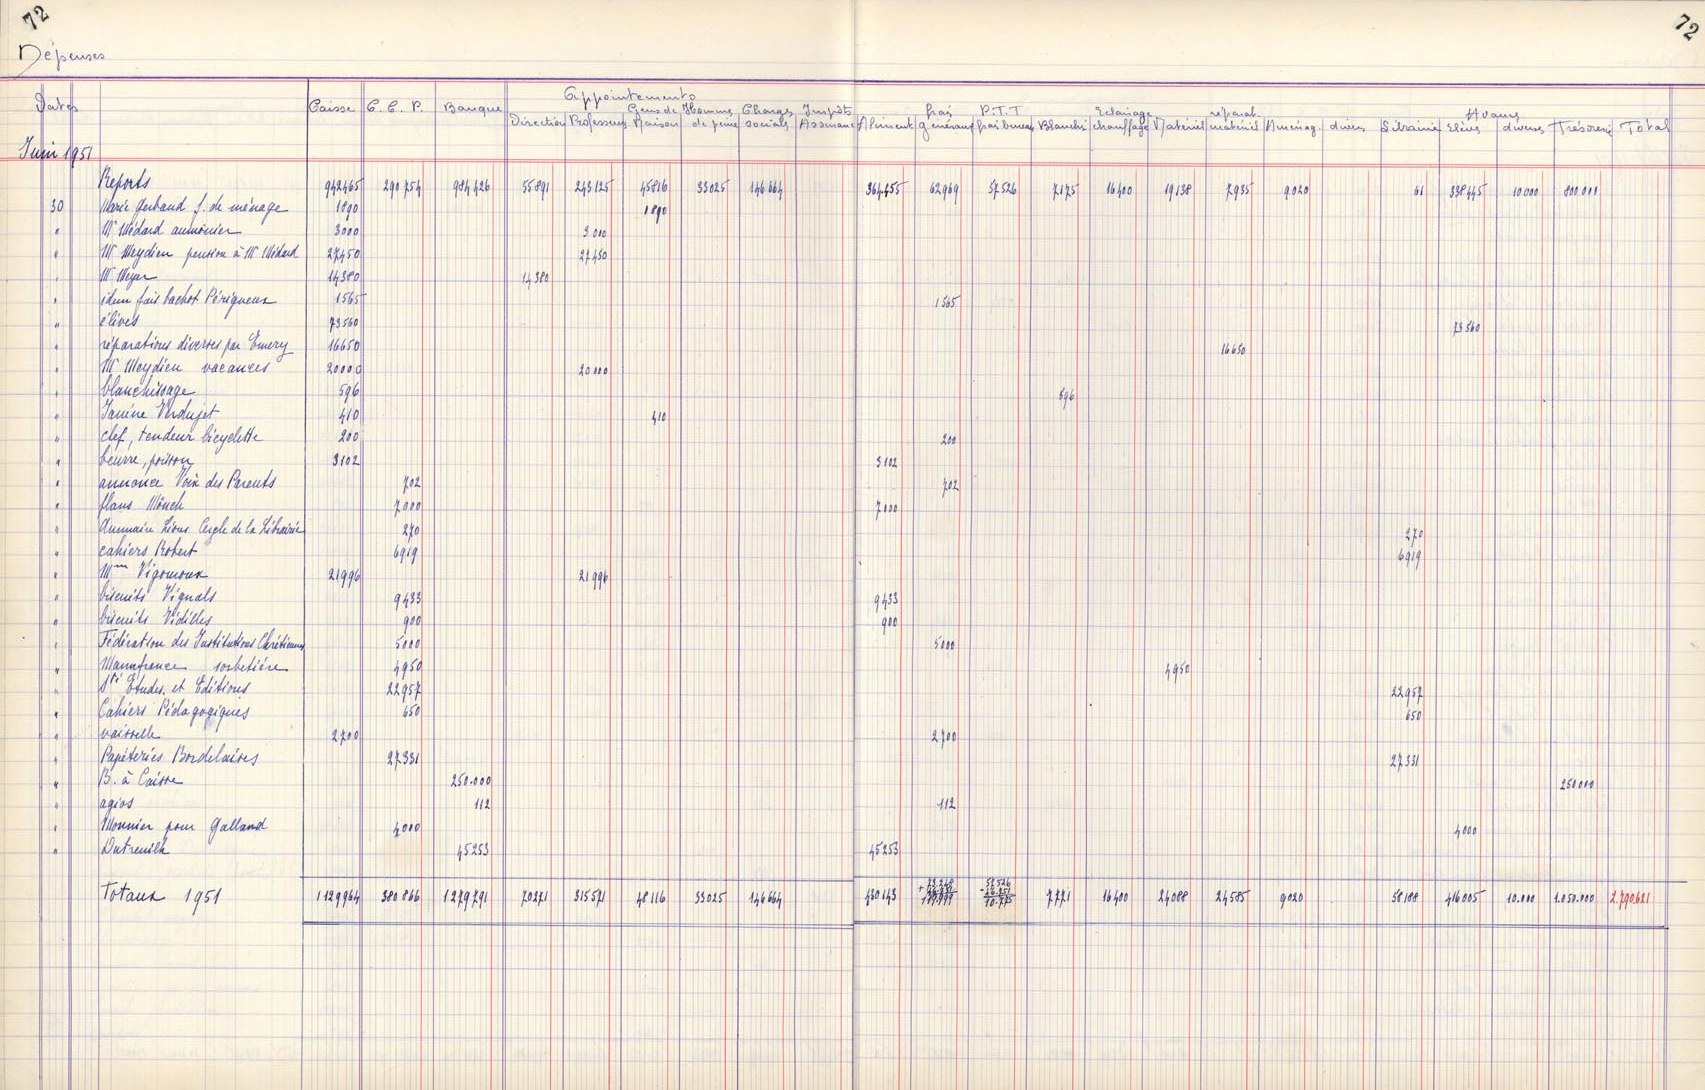 72
72
Dépenses
Appointements
Dates Caisse C. C. P. Banque Direction Professeurs Gens de Maison Hommes de peine Charges sociales Impôts Assurance Aliment frais généraux P.T.T frais bureau Blanchi Eclairage chauffage Matériel réparat. matériel Aménag. divers Librairie Avances Elèves diverses Trésorerie Total
Juin 1951
Reports 942465 290754 984426 55891 243125 45816 33025 146664 364455 62969 57526 7175 16400 19138 7935 9020 61 338445 10000 800000
30 Marie Gerbaud f. de ménage 1890 1890
" Mr Médard aumônier 3000 3000
" Mr Meydieu pension à Mr Médard 27450 27450
" Mr Meyar 14380 14380
" idem fais bachot Périgueux 1565 1565
" élèves 73560 73560
" réparations diverses par Emery 16650 16650
" Mr Meydieu vacances 20000 20000
" blanchissage 596 596
" Janine Verdujet 410 410
" clef, tendeur bicyclette 200 200
" beurre, poisson 3102 3102
" annonce Voix des Parents 702 702
" flans Mönch 7000 7000
" Annuaire Lions Cercle de la Librairie 270 270
" cahiers Robert 6919 6919
" Mme Vigouroux 21996 21996
" biscuits Vignals 9433 9433
" biscuits Védilles 900 900
" Fédération des Institutions Chrétiennes 5000 5000
" Manufrance sorbetière 4950 4950
" Sté Etudes et Editions 22957 22957
" Cahiers Pédagogiques 650 650
" vaisselle 2700 2700
" Papéteries Bordelaises 27331 27331
" B. à Caisse 250.000 250000
" agios 112 112
" Monnier pour Galland 4000 4000
" Dutreuilh 45253 45253
Totaux 1951 1129964 380866 1279791 70271 315571 48116 33025 146664 430143 73.248 57526 10.775 7771 16400 24088 24585 9020 58188 416005 10.000 1.050.000 2.790.621